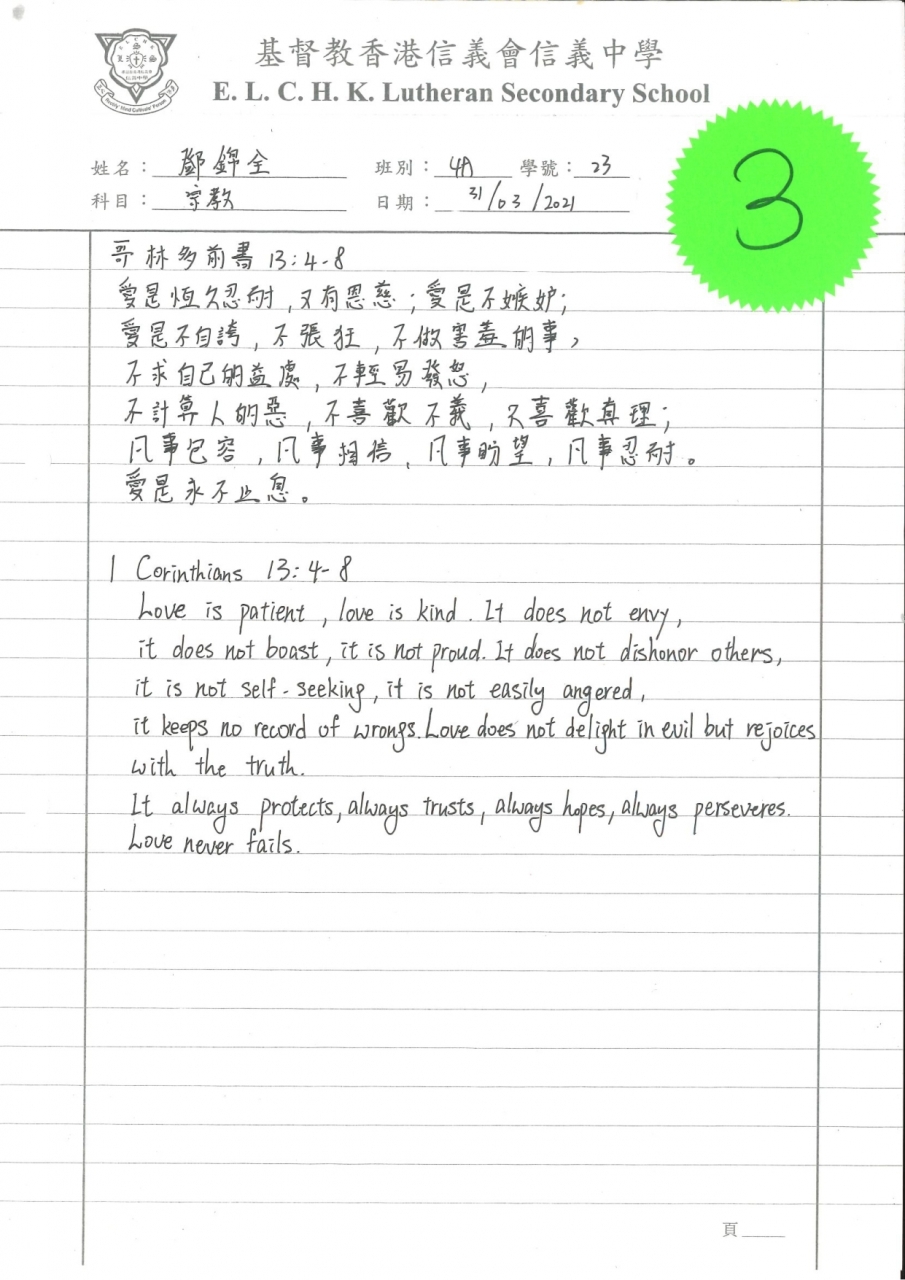 基督教香港信義會信義中學
E. L. C. H. K. Lutheran Secondary School
3
姓名：鄧錦全 班別：4A 學號：23
科目：宗教 日期：31/03/2021
哥林多前書 13:4-8
愛是恆久忍耐，又有恩慈；愛是不嫉妒；
愛是不自誇，不張狂，不做害羞的事，
不求自己的益處，不輕易發怒，
不計算人的惡，不喜歡不義，只喜歡真理；
凡事包容，凡事相信，凡事盼望，凡事忍耐。
愛是永不止息。
1 Corinthians 13:4-8
Love is patient, love is kind. It does not envy,
it does not boast, it is not proud. It does not dishonor others,
it is not self-seeking, it is not easily angered,
it keeps no record of wrongs. Love does not delight in evil but rejoices
with the truth.
It always protects, always trusts, always hopes, always perseveres.
Love never fails.
頁